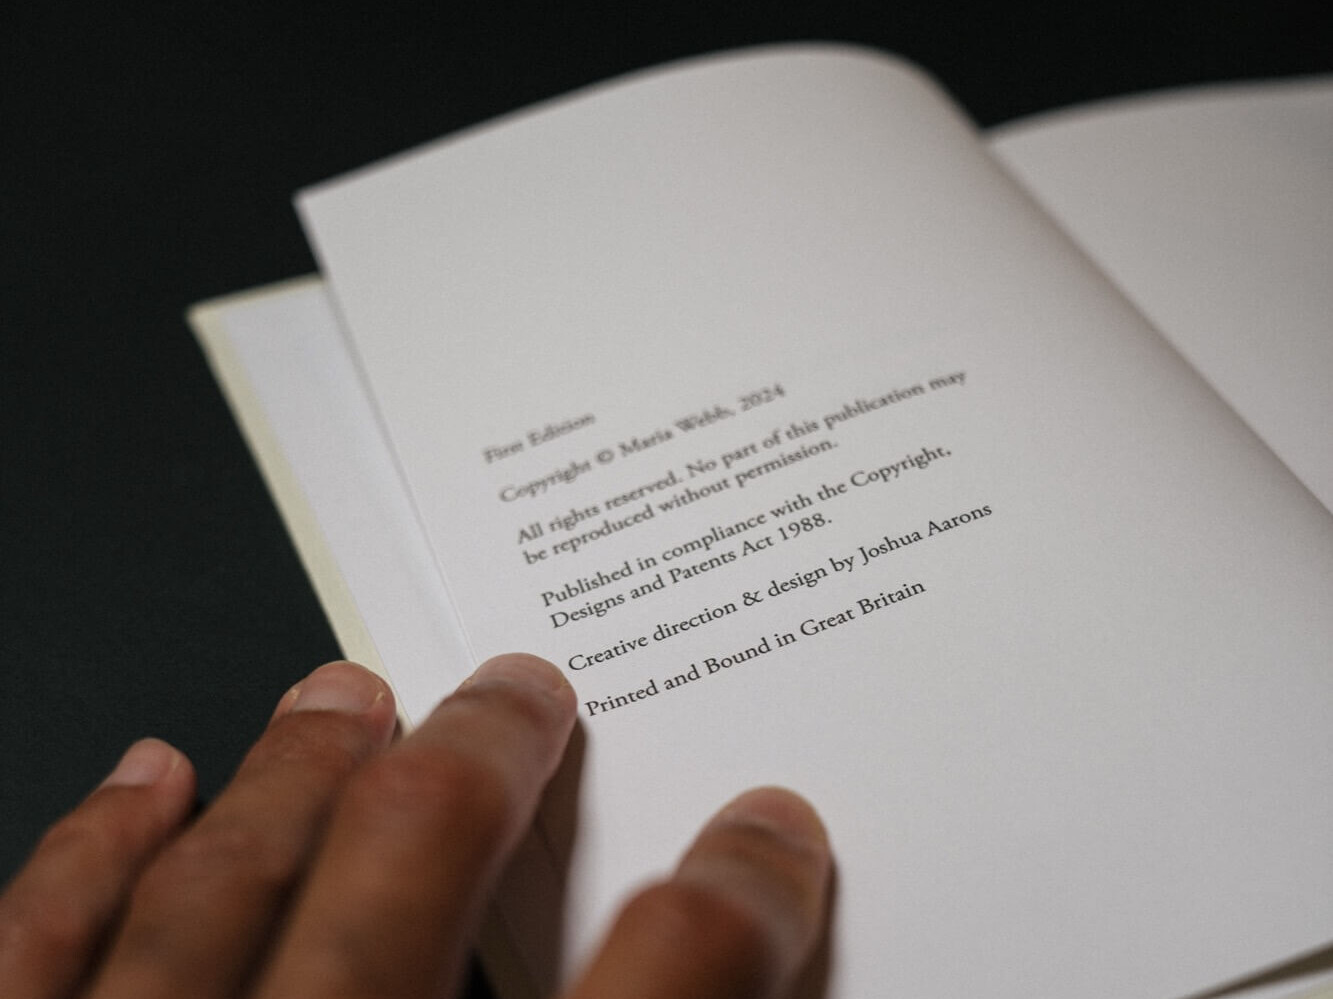 First Edition
Copyright © Maria Webb, 2024
All rights reserved. No part of this publication may
be reproduced without permission.
Published in compliance with the Copyright,
Designs and Patents Act 1988.
Creative direction & design by Joshua Aarons
Printed and Bound in Great Britain